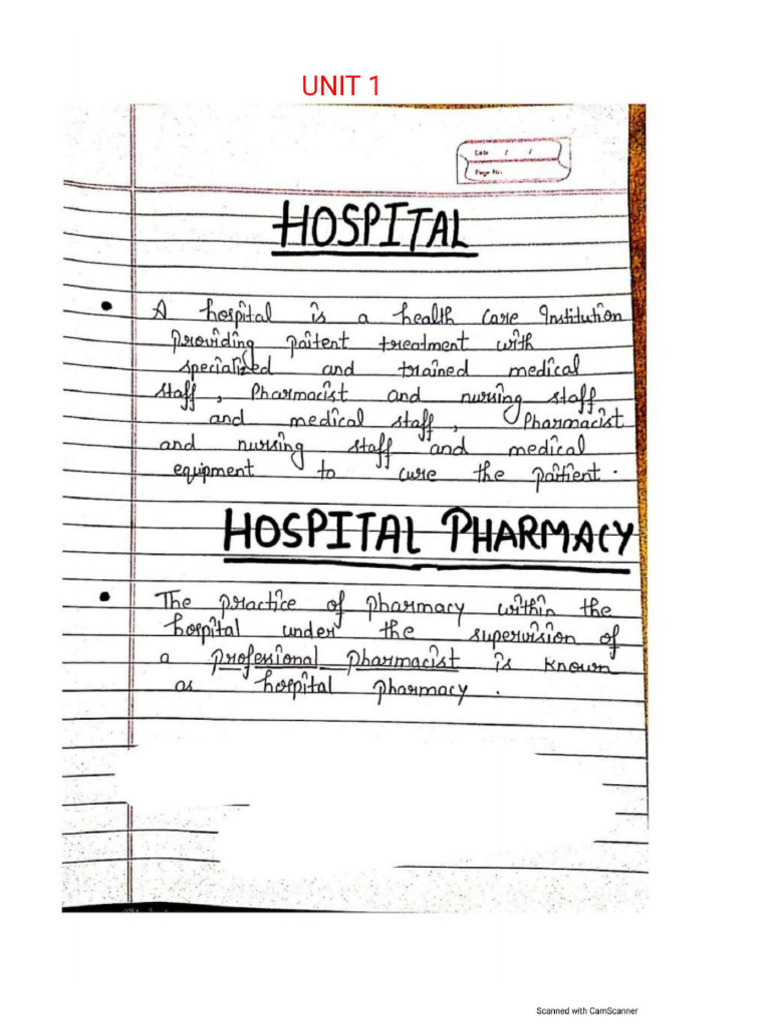 UNIT 1
Date / /
Page No.
HOSPITAL
• A hospital is a health care Institution
providing paitent treatment with
specialized and trained medical
staff , Pharmacist and nursing staff
and medical staff , Pharmacist
and nursing staff and medical
equipment to cure the paitient .
HOSPITAL PHARMACY
• The practice of pharmacy within the
hospital under the supervision of
a professional pharmacist is known
as hospital pharmacy .
Scanned with CamScanner